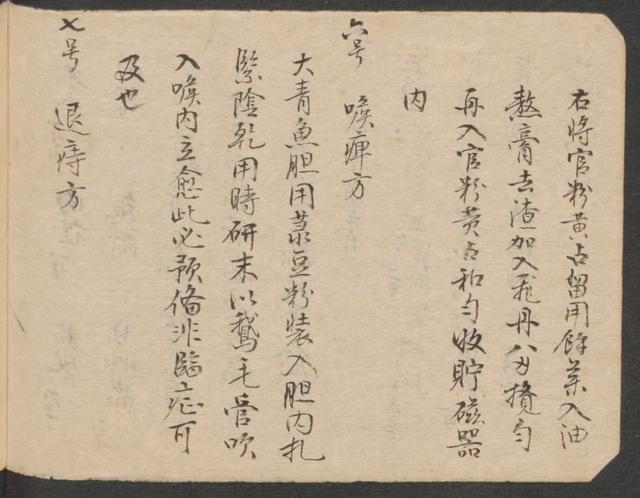 右将官粉黄占留用餘薬入油
熬膏去渣加入飛丹八分攪勻
再入官粉黄占和勻收貯磁器
内
六号 喉痺方
大青魚胆用菉豆粉装入胆内扎
緊陰乾用時研末以鵝毛管吹
入喉内立愈此必預備非臨症可
及也
七号 退痔方